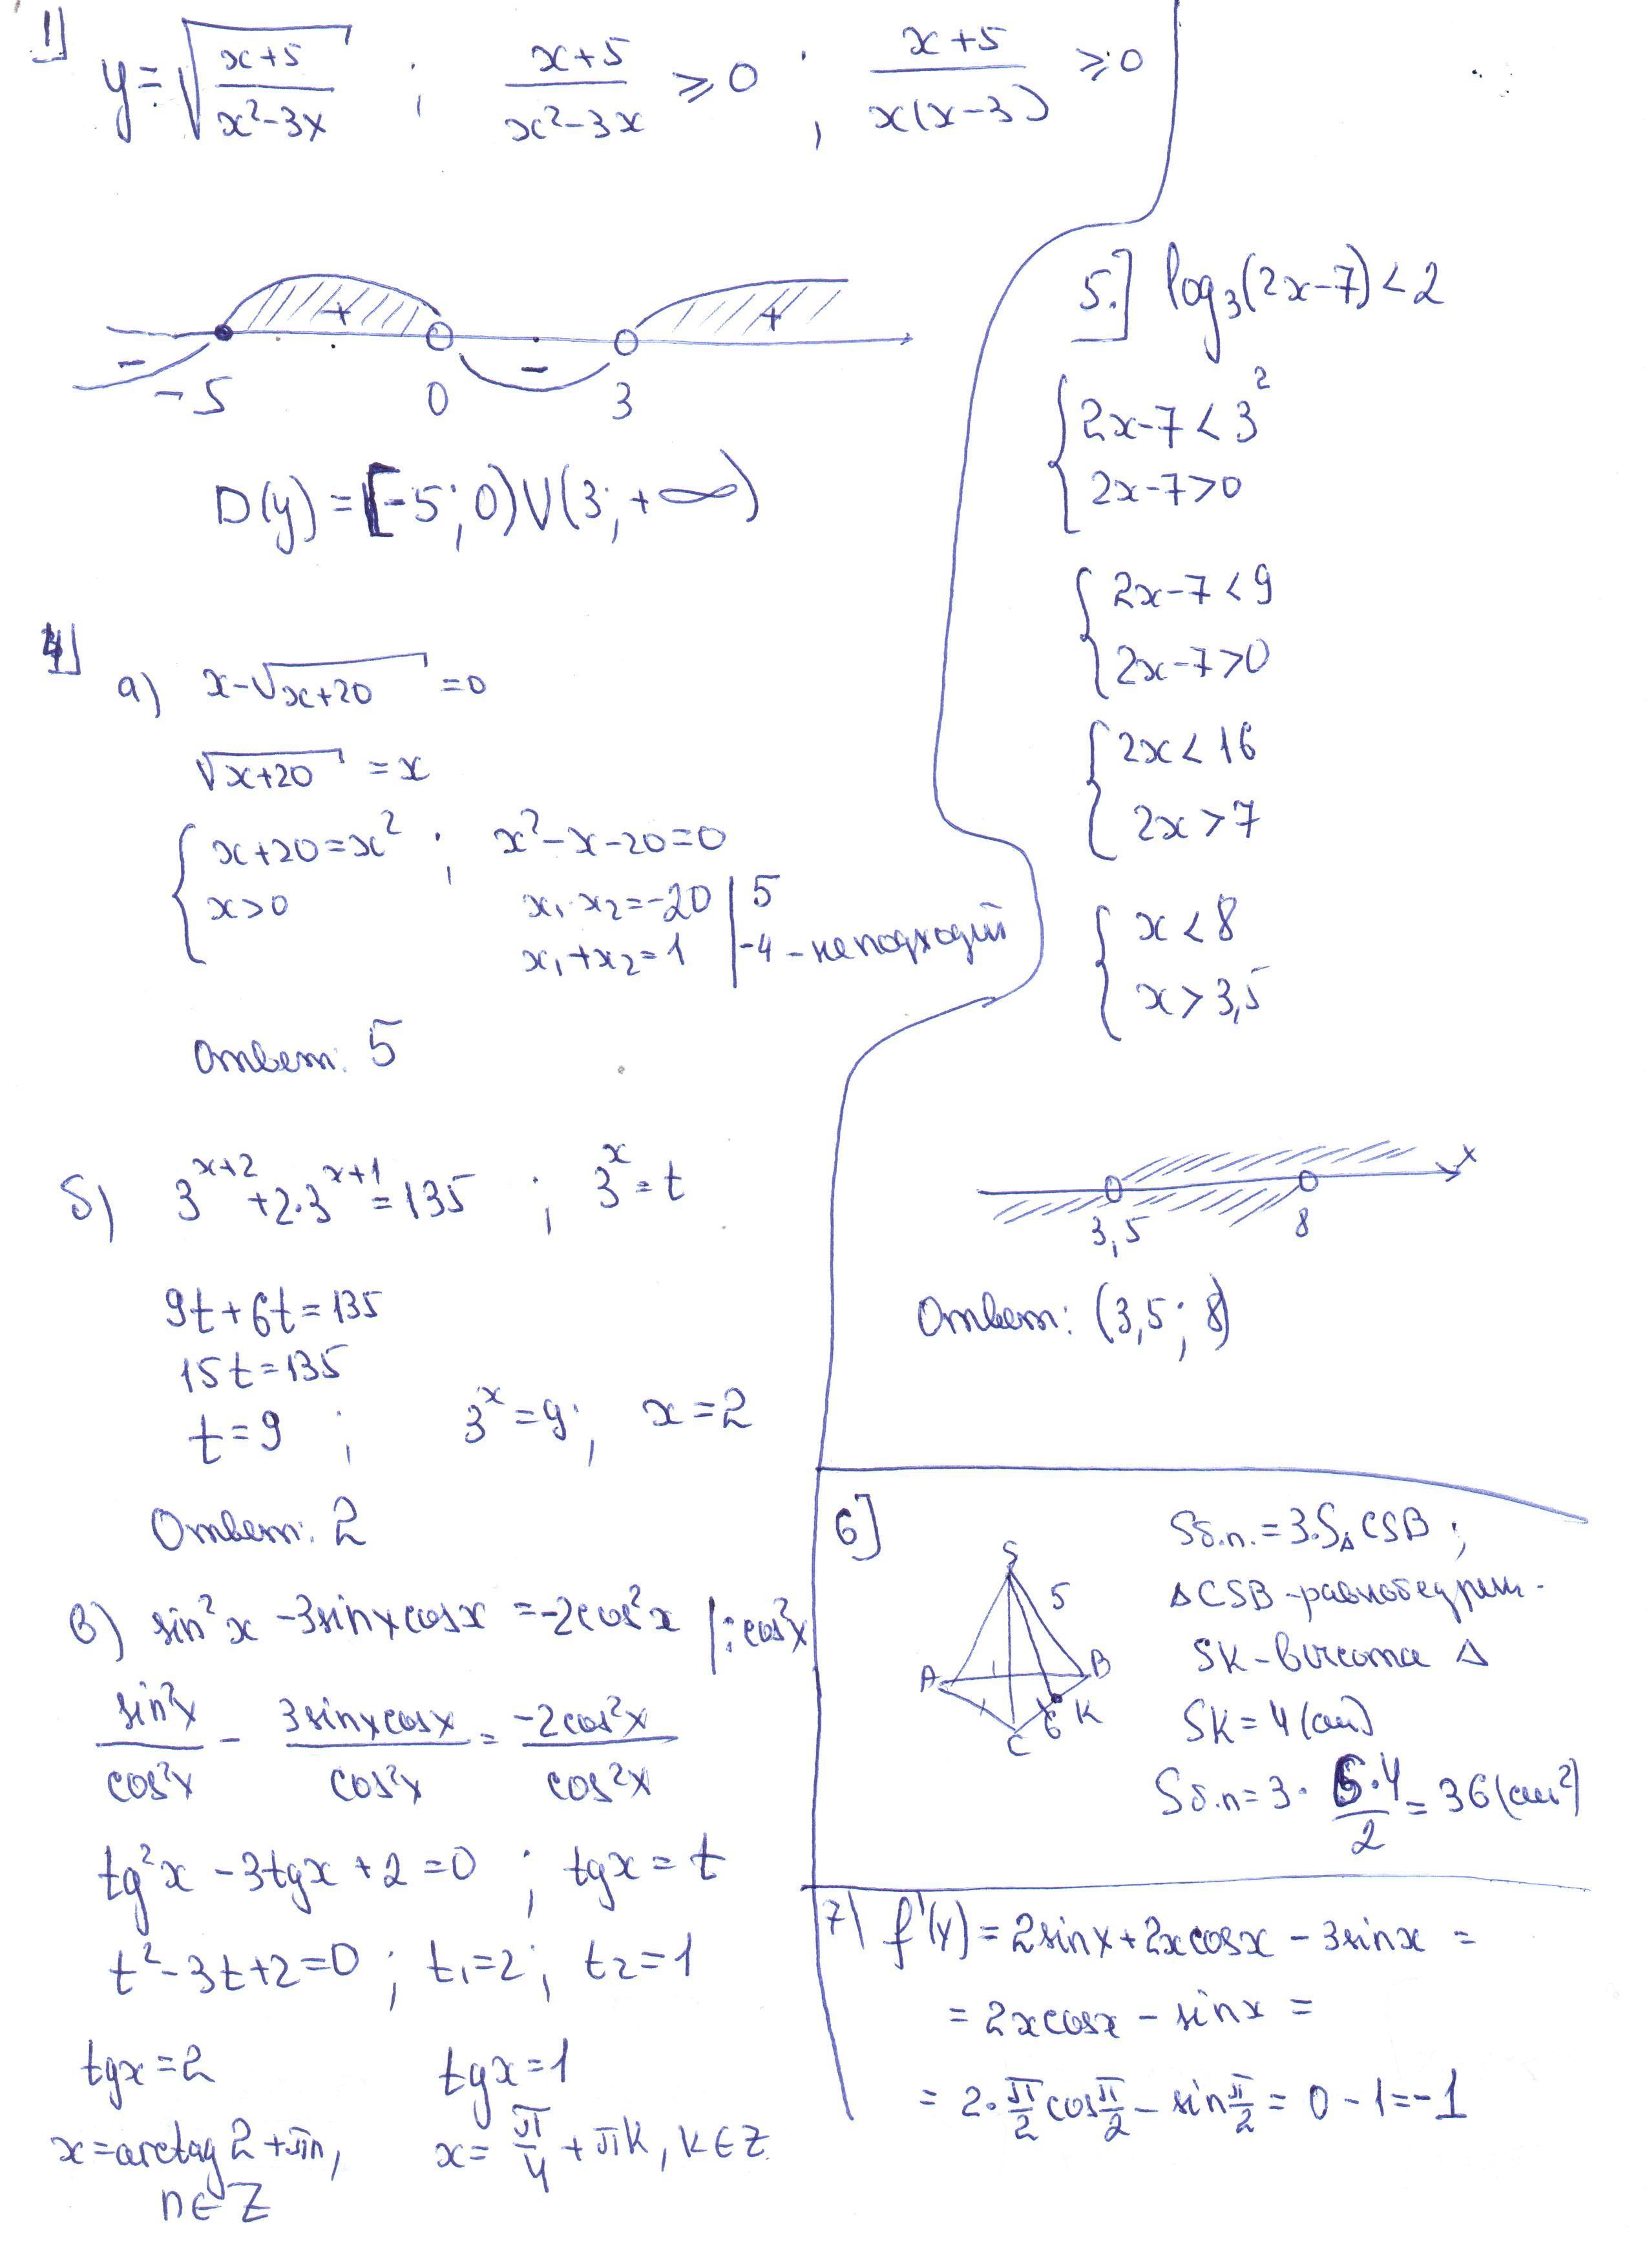 1]
y=√((x+5)/(x²-3x)) ; (x+5)/(x²-3x) ⩾0 ; (x+5)/(x(x-3)) ⩾0
+ +
- -
-5 0 3
D(y)=[-5;0)∪(3;+∞)
4]
а) x-√(x+20) =0
√(x+20) =x
{ x+20=x² ; x²-x-20=0
x>0 x₁·x₂=-20 | 5
x₁+x₂=1 | -4 - не подходит
Ответ: 5
б) 3^(x+2)+2·3^(x+1)=135 ; 3^x=t
9t+6t=135
15t=135
t=9 ; 3^x=9; x=2
Ответ: 2
в) sin²x -3sinxcosx =-2cos²x |:cos²x
sin²x/cos²x - 3sinxcosx/cos²x = -2cos²x/cos²x
tg²x -3tgx+2=0 ; tgx=t
t²-3t+2=0 ; t₁=2; t₂=1
tgx=2 tgx=1
x=arctg2+πn, x=π/4+πk, k∈Z
n∈Z
5.] log₃(2x-7)<2
{ 2x-7<3²
2x-7>0
{ 2x-7<9
2x-7>0
{ 2x<16
2x>7
{ x<8
x>3,5
x
3,5 8
Ответ: (3,5; 8)
6]
S
5
A B
6 K
C
Sб.п.=3·S△CSB ;
△CSB-равнобедрен-
SK-высота △
SK=4(см)
Sб.п=3·6·4/2=36(см²)
7) f'(x)=2sinx+2xcosx-3sinx=
=2xcosx-sinx=
=2·π/2cosπ/2-sinπ/2=0-1=-1